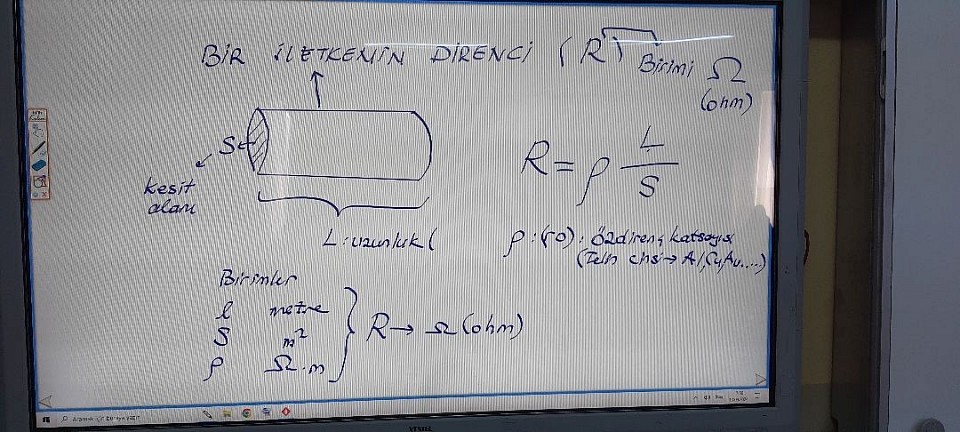 BİR İLETKENİN DİRENCİ (R) Birimi Ω
(ohm)
S
kesit
alanı
R = ρ L/S
L: uzunluk (
ρ: (ro): özdirenç katsayısı
(Telin cinsi → Al, Cu, Au....)
Birimler
l metre
S m²
ρ Ω.m
R → Ω (ohm)
VESTEL